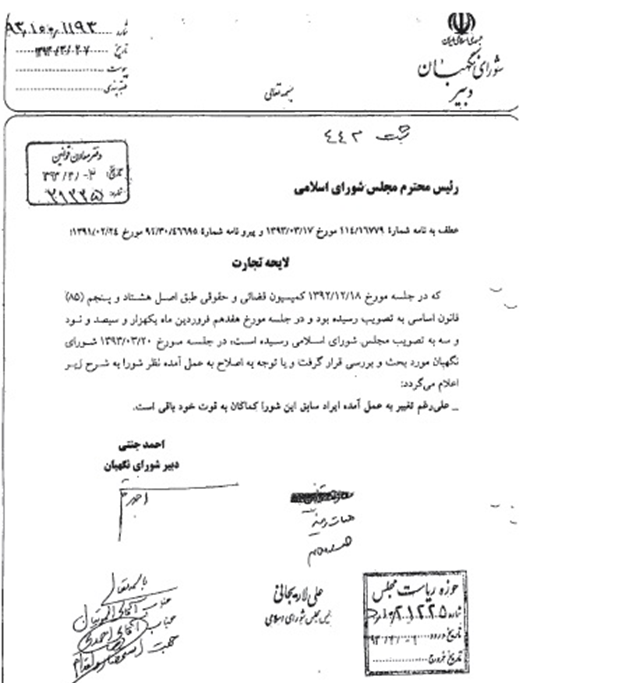 جمهوری اسلامی ایران
شورای نگهبان
دبیر
شماره ۹۳/۱۰۰/۱۱۹۳
تاریخ ۱۳۹۳/۳/۲۰
پیوست
طبقه‌بندی
بسمه تعالی
ثبت ۴۴۲
دفتر معاون قوانین
تاریخ:
شماره:
رئیس محترم مجلس شورای اسلامی
عطف به نامه شمارهٔ ۱۱۴/۱۶۷۷۹ مورخ ۱۳۹۳/۰۳/۱۷ و پیرو نامه شمارهٔ ۹۱/۳۰/۴۶۶۹۵ مورخ ۱۳۹۱/۰۲/۲۴؛
لایحه تجارت
که در جلسه مورخ ۱۳۹۲/۱۲/۱۸ کمیسیون قضائی و حقوقی طبق اصل هشتاد و پنجم (۸۵)
قانون اساسی به تصویب رسیده بود و در جلسه مورخ هفدهم فروردین ماه یکهزار و سیصد و نود
و سه به تصویب مجلس شورای اسلامی رسیده است، در جلسه مورخ ۱۳۹۳/۰۳/۲۰ شورای
نگهبان مورد بحث و بررسی قرار گرفت و با توجه به اصلاح به عمل آمده نظر شورا به شرح زیر
اعلام می‌گردد:
_ علی‌رغم تغییر به عمل آمده ایراد سابق این شورا کماکان به قوت خود باقی است.
احمد جنتی
دبیر شورای نگهبان
علی لاریجانی
رئیس مجلس شورای اسلامی
باسمه تعالی
حوزه ریاست مجلس
شماره
تاریخ ورود
تاریخ خروج